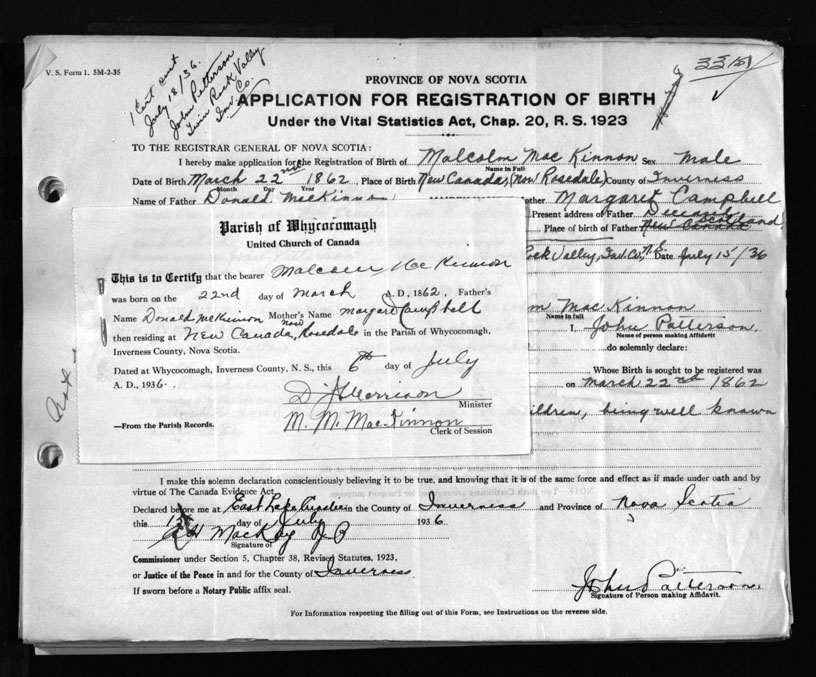 V. S. Form 1. 5M-2-35
1 Cert sent
July 18/36.
John Patterson
Twin Rock Valley
Inv. Co.
PROVINCE OF NOVA SCOTIA
APPLICATION FOR REGISTRATION OF BIRTH
Under the Vital Statistics Act, Chap. 20, R. S. 1923
TO THE REGISTRAR GENERAL OF NOVA SCOTIA:
I hereby make application for the Registration of Birth of Malcolm MacKinnon Sex Male
Name in Full
Date of Birth March 22nd 1862, Place of Birth New Canada, (now Rosedale) County of Inverness
Month Day Year
Name of Father Donald MacKinnon Mother Margaret Campbell
Present address of Father Deceased
Place of birth of Father New Canada Scotland
Rock Valley, Inv. Co., N.S. Date July 15/36
Parish of Whycocomagh
United Church of Canada
This is to Certify that the bearer Malcolm MacKinnon
was born on the 22nd day of March A. D, 1862, Father's
Name Donald McKinnon Mother's Name Margaret Campbell
now
then residing at New Canada, Rosedale in the Parish of Whycocomagh,
Inverness County, Nova Scotia.
Dated at Whycocomagh, Inverness County, N. S., this 6th day of July
A. D., 1936.
Morrison
Minister
M. M. MacKinnon
Clerk of Session
—From the Parish Records.
m MacKinnon
Name in full
I, John Patterson,
Name of person making Affidavit
do solemnly declare:
Whose Birth is sought to be registered was
on March 22nd 1862
ildren, being well known
I make this solemn declaration conscientiously believing it to be true, and knowing that it is of the same force and effect as if made under oath and by
virtue of The Canada Evidence Act.
Declared before me at East Lake Ainslie in the County of Inverness and Province of Nova Scotia
this day of July 1936.
MacKay J P
Signature of
Commissioner under Section 5, Chapter 38, Revised Statutes, 1923,
or Justice of the Peace in and for the County of Inverness
If sworn before a Notary Public affix seal.
John Patterson.
Signature of Person making Affidavit.
For Information respecting the filling out of this Form, see Instructions on the reverse side.